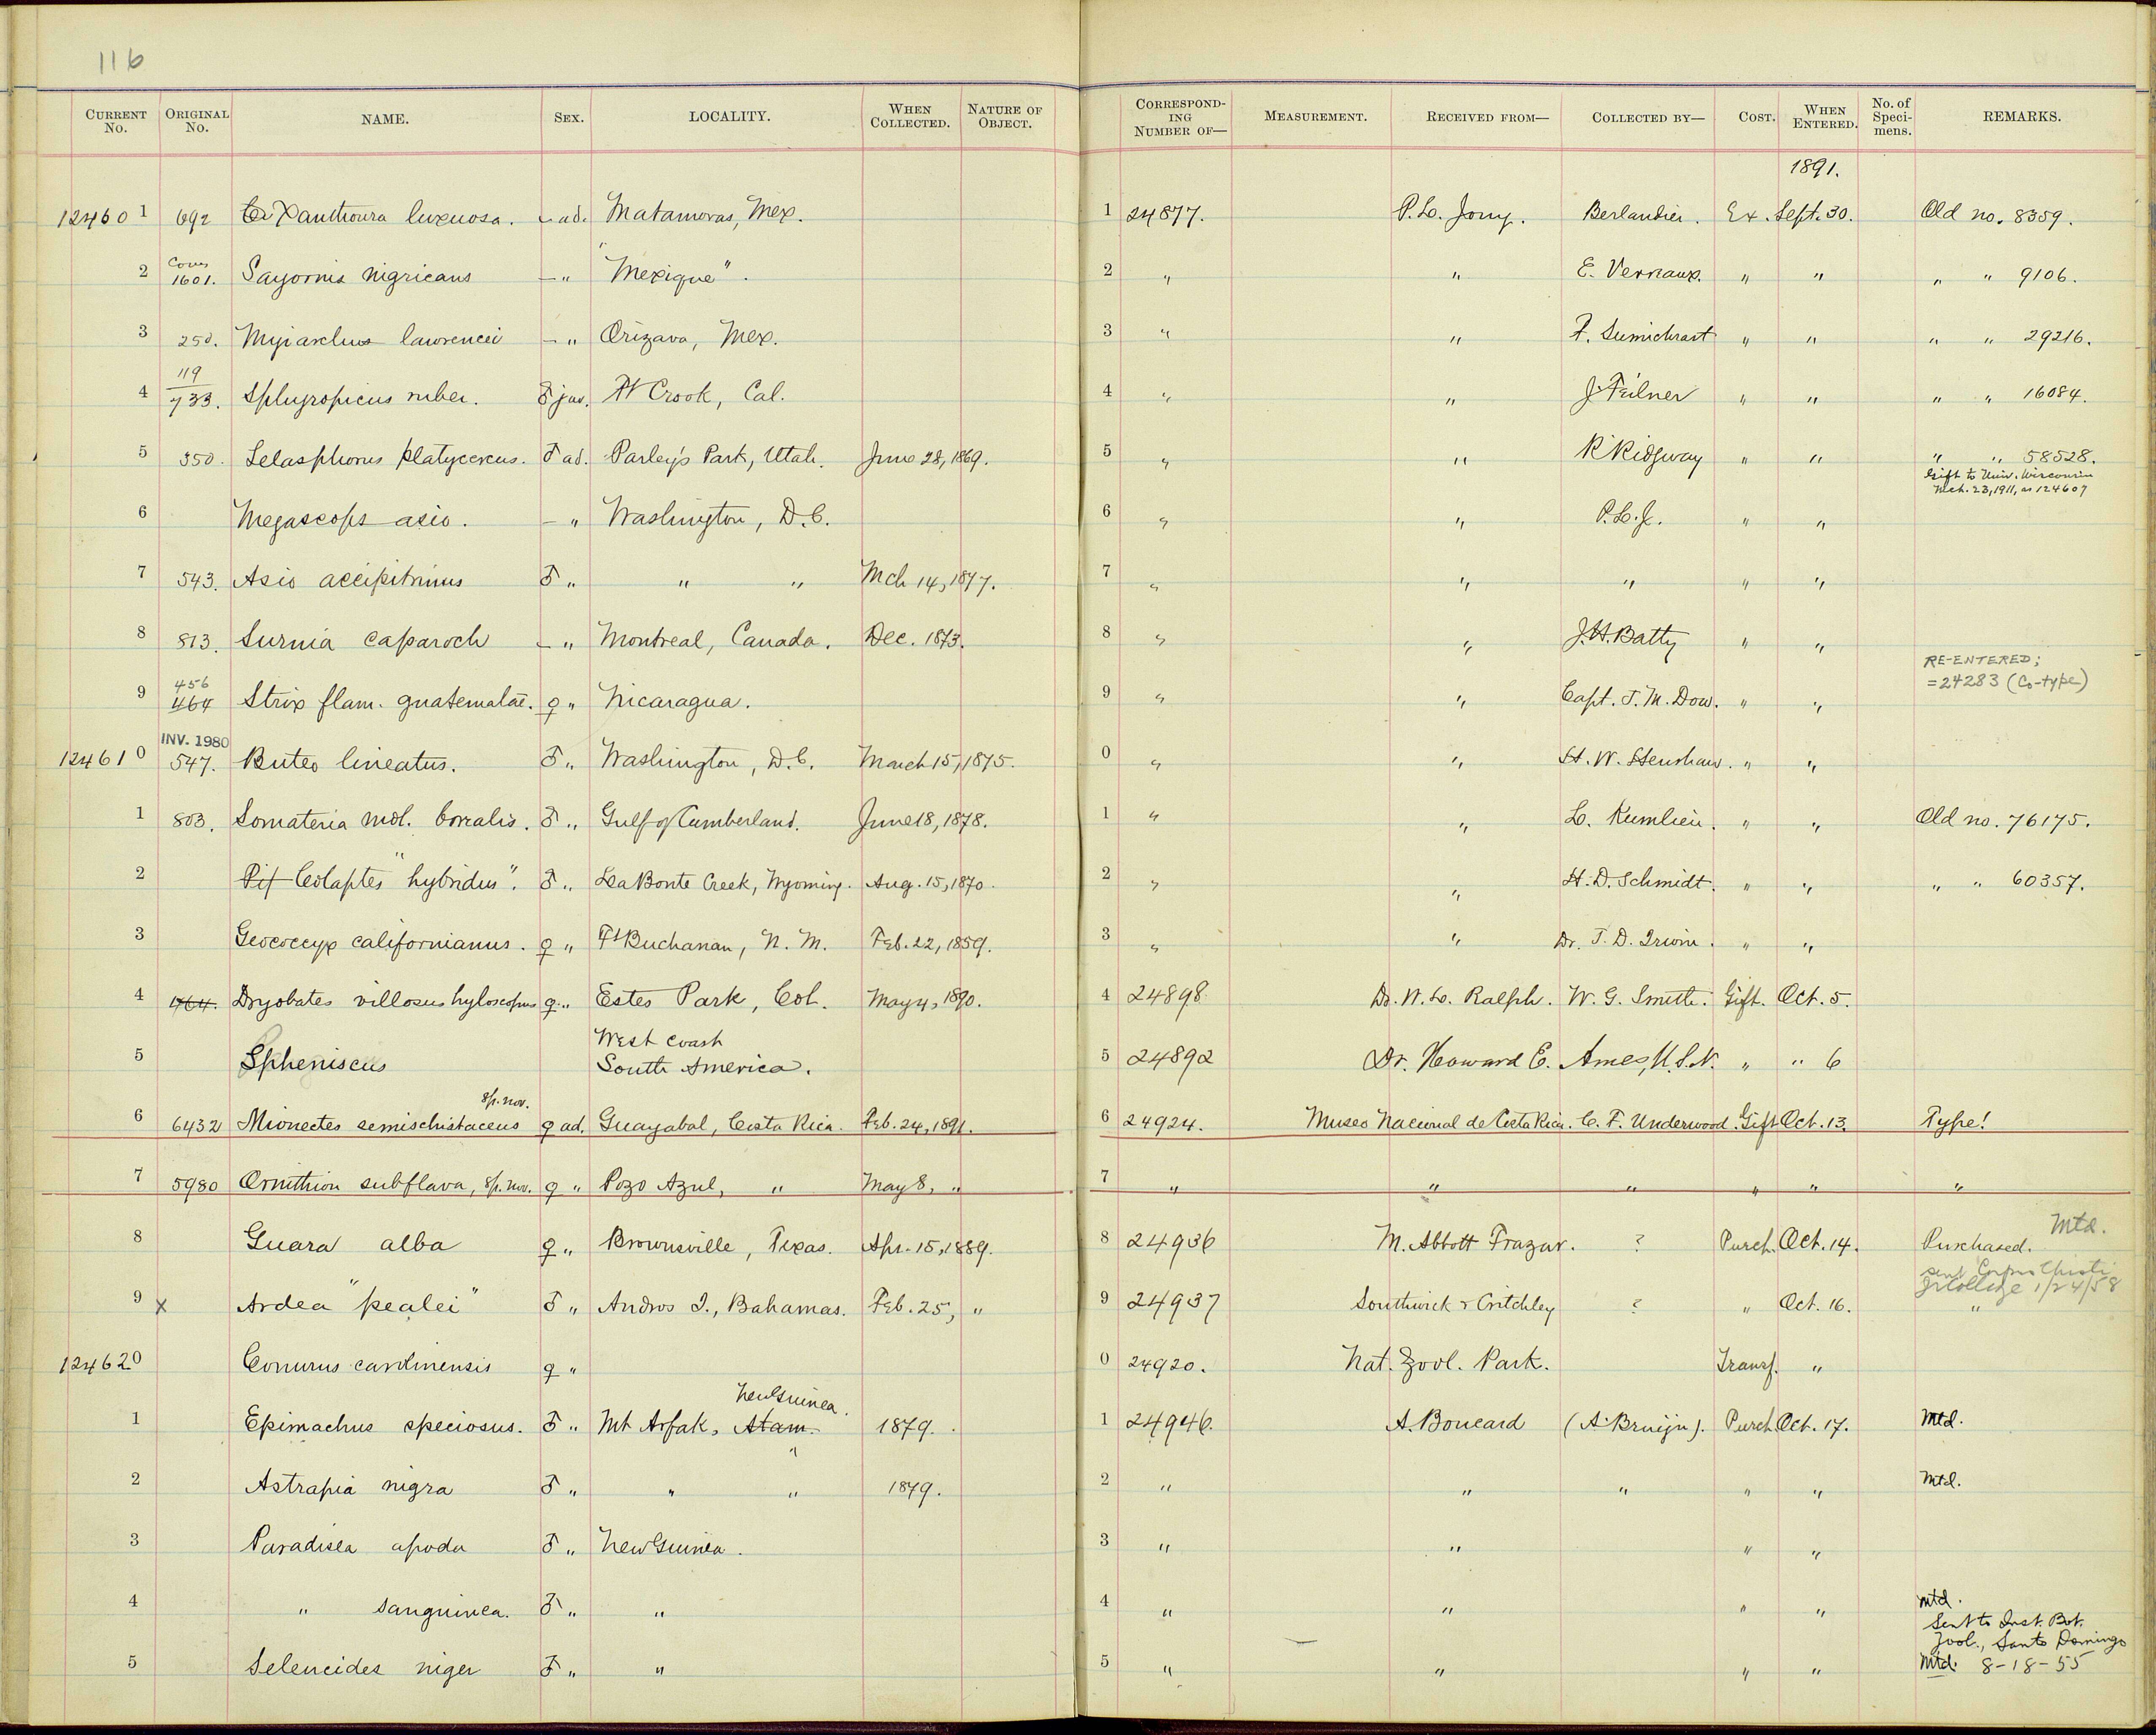 116
CURRENT No. ORIGINAL No. NAME. SEX. LOCALITY. WHEN COLLECTED. NATURE OF OBJECT. CORRESPONDING NUMBER OF— MEASUREMENT. RECEIVED FROM— COLLECTED BY— COST. WHEN ENTERED. No. of Specimens. REMARKS.
1891.
12460 1 692 Xanthoura luxuosa. – ad. Matamoras, Mex. 1 24877. P. L. Jouy. Berlandier. Ex. Sept. 30. Old no. 8359.
2 Coues 1601. Sayornis nigricans – " "Mexique". 2 " " E. Verraux. " " " " 9106.
3 250. Myiarchus lawrencei – " Orizava, Mex. 3 " " F. Sumichrast " " " " 29216.
4 119 / 733. Sphyropicus ruber. ♂ juv. Ft Crook, Cal. 4 " " J. Feilner " " " " 16084.
5 350. Selasphorus platycercus. ♂ ad. Parley's Park, Utah. June 28, 1869. 5 " " R Ridgway " " " " 58528.
Gift to Univ. Wisconsin
Mch. 23, 1911, as 124607
6 Megascops asio. – " Washington, D.C. 6 " " P. L. J. " "
7 543. Asio accipitrinus ♂ " " " Mch 14, 1877. 7 " " " " "
8 813. Surnia caparoch – " Montreal, Canada. Dec. 1873. 8 " " J. H. Batty " "
RE-ENTERED;
= 24283 (Co-type)
9 456 464 Strix flam. guatemalæ. ♀ " Nicaragua. 9 " " Capt. J. M. Dow. " "
INV. 1980
12461 0 547. Buteo lineatus. ♂ " Washington, D.C. March 15, 1875. 0 " " H. W. Henshaw. " "
1 803. Somateria mol. borealis. ♂ " Gulf of Cumberland. June 18, 1878. 1 " " L. Kumlien. " " Old no. 76175.
2 Pip Colaptes "hybridus". ♂ " La Bonte Creek, Wyoming. Aug. 15, 1870. 2 " " H. D. Schmidt. " " " " 60357.
3 Geococcyx californianus. ♀ " Ft Buchanan, N. M. Feb. 22, 1859. 3 " " Dr. J. D. Irwin. " "
4 164. Dryobates villosus hyloscopus ♀ " Estes Park, Col. May 4, 1890. 4 24898. Dr. W. L. Ralph. W. G. Smith. Gift. Oct. 5.
West Coast
5 Spheniscus South America. 5 24892 Dr. Howard E. Ames, U.S.N. " " 6
sp. nov.
6 6432 Mionectes semischistaceus ♀ ad. Guayabal, Costa Rica. Feb. 24, 1891. 6 24924. Museo Nacional de Costa Rica. C. F. Underwood. Gift Oct. 13. Type!
7 5980 Ornithion subflava, sp. nov. ♀ " Pozo Azul, " May 8, " 7 " " " " " "
Mtd.
8 Guara alba ♀ " Brownsville, Texas. Apr. 15, 1889. 8 24936 M. Abbott Frazar. ? Purch. Oct. 14. Purchased.
sent Corpus Christi
Jr College 1/24/58
9 x Ardea "pealei" ♂ " Andros I., Bahamas. Feb. 25, " 9 24937 Southwick & Critchley ? " Oct. 16. "
12462 0 Conurus carolinensis ♀ " 0 24920. Nat. Zool. Park. Transf. "
New Guinea.
1 Epimachus speciosus. ♂ " Mt Arfak, Atam. 1879. 1 24946. A. Boucard (A. Bruijn). Purch. Oct. 17. Mtd.
2 Astrapia nigra ♂ " " " 1879. 2 " " " " " Mtd.
3 Paradisea apoda ♂ " New Guinea. 3 " " " "
4 " sanguinea. ♂ " " 4 " " " " Mtd.
Sent to Inst. Bot.
Zool., Santo Domingo
5 Seleucides niger ♂ " " 5 " " " " Mtd. 8-18-55